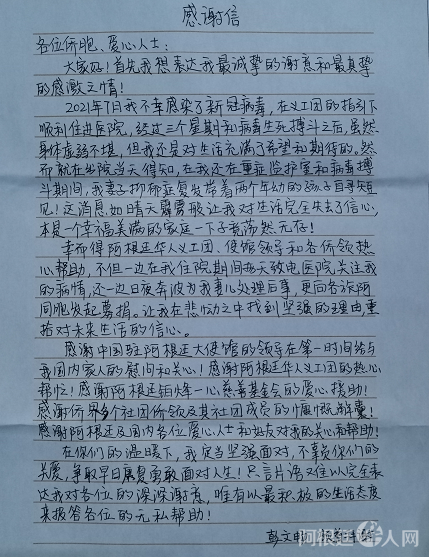 感谢信
各位侨胞、爱心人士:
大家好!首先我想表达我最诚挚的谢意和最真挚
的感激之情!
2021年7月我不幸感染了新冠病毒,在义工团的指引下
顺利住进医院,经过三个星期和病毒生死搏斗之后,虽然
身体虚弱不堪,但我还是对生活充满了希望和期待的。然
而就在出院当天得知,在我还在重症监护室和病毒搏
斗期间,我妻子抑郁症复发带着两个年幼的孩子自寻短
见!这消息如晴天霹雳般让我对生活完全失去了信心,
本是一个幸福美满的家庭一下子竟荡然无存!
幸而得阿根廷华人义工团、使馆领导和各侨领热
心帮助,不但一边在我住院期间每天致电医院关注我
的病情,还一边日夜奔波为我妻儿处理后事,更向各旅阿
同胞发起募捐。让我在悲恸之中找到坚强的理由重
拾对未来生活的信心。
感谢中国驻阿根廷大使馆的领导在第一时间给与
我国内家人的慰问和关心!感谢阿根廷华人义工团的热心
帮忙!感谢阿根廷铂烽一心慈善基金会的爱心援助!
感谢侨界多个社团侨领及其社团成员的慷慨解囊!
感谢阿根廷及国内各位爱心人士和好友对我的关心和帮助!
在你们的温暖下,我定当坚强面对,不辜负你们的
关爱,争取早日康复勇敢面对人生!只言片语不足以完全表
达我对各位的深深谢意,唯有以最积极的生活态度
来报答各位的无私帮助!
彭文
阿根廷华人网